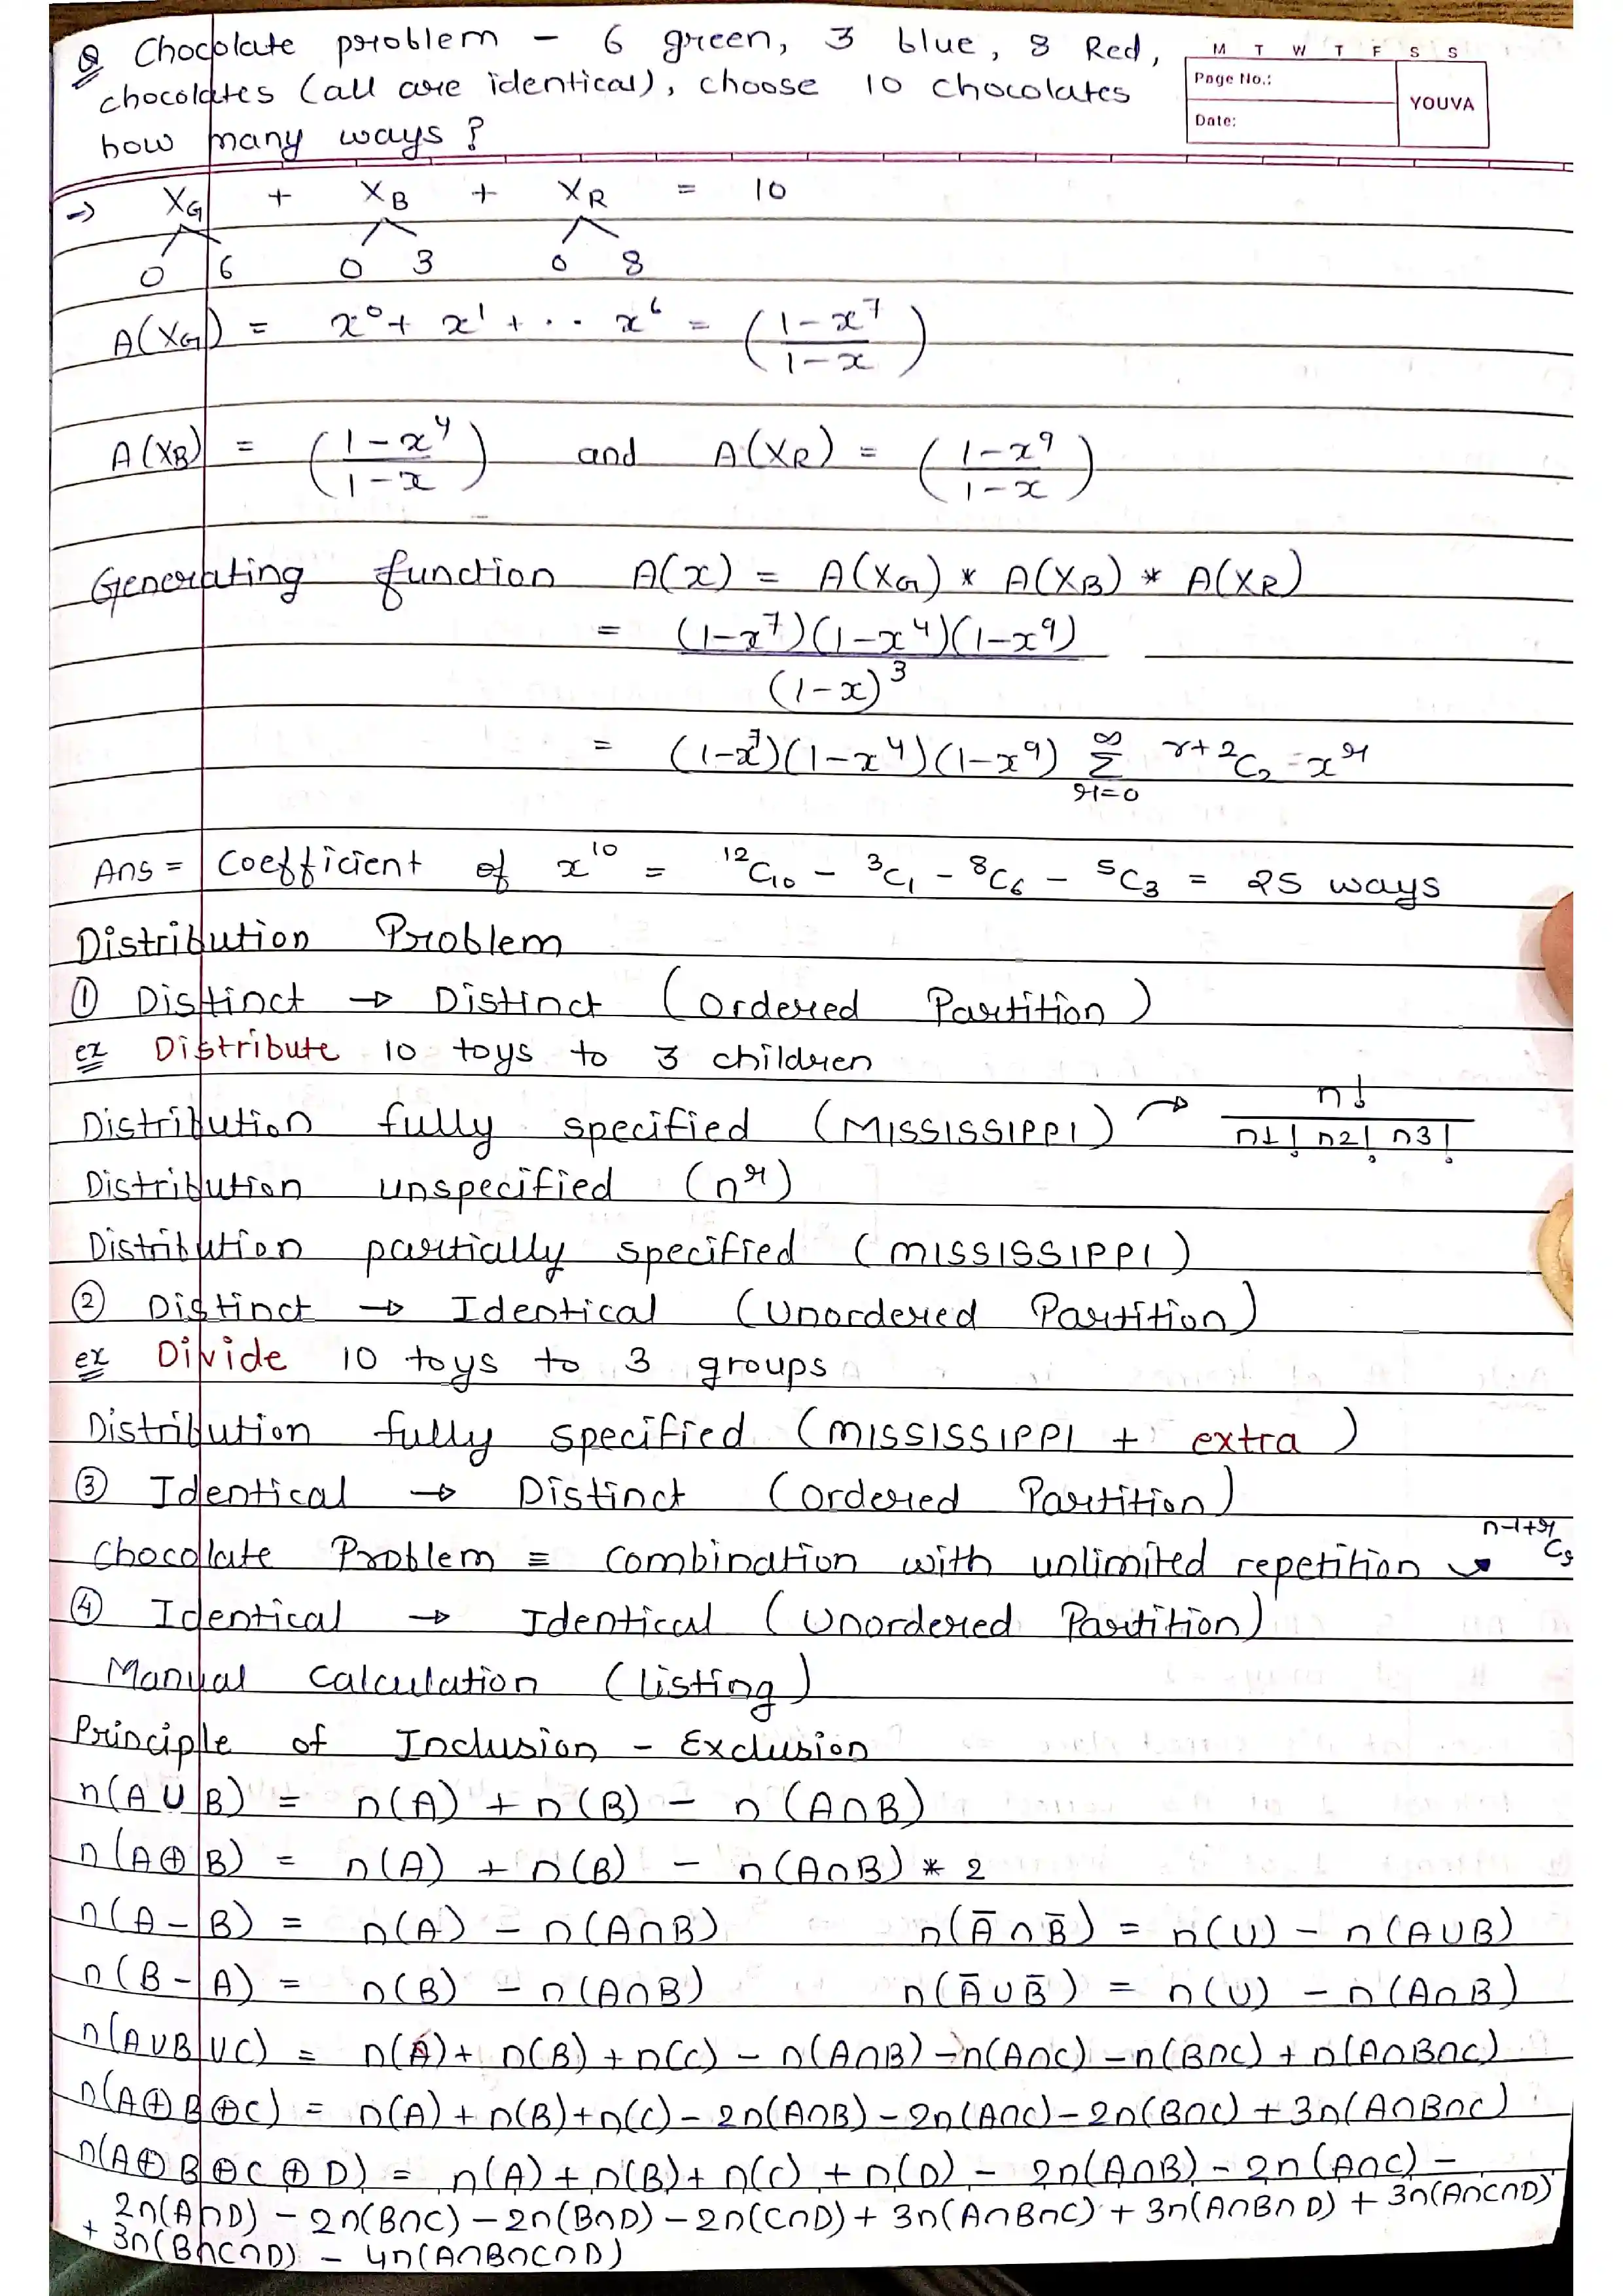 Q Chocolate problem - 6 green, 3 blue, 8 Red,
chocolates (all are identical), choose 10 chocolates
how many ways?
M T W T F S S
Page No.:
Date:
YOUVA
→ XG + XB + XR = 10
0 6 0 3 0 8
A(XG) = x⁰ + x¹ + .. x⁶ = ((1-x⁷)/(1-x))
A(XB) = ((1-x⁴)/(1-x)) and A(XR) = ((1-x⁹)/(1-x))
Generating function A(x) = A(XG) * A(XB) * A(XR)
= (1-x⁷)(1-x⁴)(1-x⁹)/(1-x)³
= (1-x⁷)(1-x⁴)(1-x⁹) ∞Σr=0 r+2C₂ x^r
Ans = Coefficient of x¹⁰ = ¹²C₁₀ - ³C₁ - ⁸C₆ - ⁵C₃ = 25 ways
Distribution Problem
① Distinct → Distinct (Ordered Partition)
ex Distribute 10 toys to 3 children
Distribution fully specified (MISSISSIPPI) → n!/(n1! n2! n3!)
Distribution unspecified (n^r)
Distribution partially specified (MISSISSIPPI)
② Distinct → Identical (Unordered Partition)
ex Divide 10 toys to 3 groups
Distribution fully specified (MISSISSIPPI + extra)
③ Identical → Distinct (Ordered Partition)
Chocolate Problem ≡ Combination with unlimited repetition → n-1+rC
④ Identical → Identical (Unordered Partition)
Manual Calculation (listing)
Principle of Inclusion - Exclusion
n(A∪B) = n(A) + n(B) - n(A∩B)
n(A⊕B) = n(A) + n(B) - n(A∩B) * 2
n(A-B) = n(A) - n(A∩B) n(Ā∩B̄) = n(U) - n(A∪B)
n(B-A) = n(B) - n(A∩B) n(Ā∪B̄) = n(U) - n(A∩B)
n(A∪B∪C) = n(A) + n(B) + n(C) - n(A∩B) - n(A∩C) - n(B∩C) + n(A∩B∩C)
n(A⊕B⊕C) = n(A) + n(B) + n(C) - 2n(A∩B) - 2n(A∩C) - 2n(B∩C) + 3n(A∩B∩C)
n(A⊕B⊕C⊕D) = n(A) + n(B) + n(C) + n(D) - 2n(A∩B) - 2n(A∩C) -
2n(A∩D) - 2n(B∩C) - 2n(B∩D) - 2n(C∩D) + 3n(A∩B∩C) + 3n(A∩B∩D) + 3n(A∩C∩D)
+ 3n(B∩C∩D) - 4n(A∩B∩C∩D)